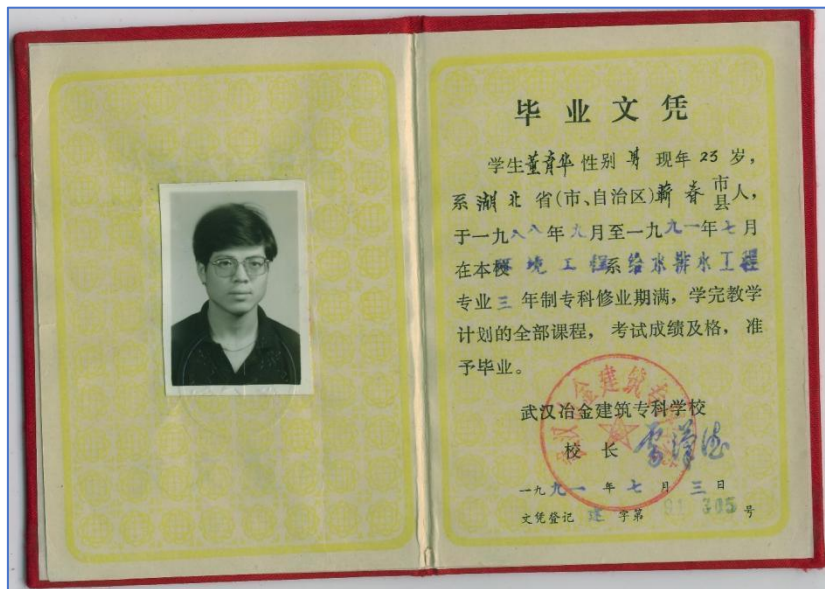 毕业文凭
学生董育华性别男现年23岁，
系湖北省(市、自治区)蕲春市县人，
于一九八八年九月至一九九一年七月
在本校环境工程系给水排水工程
专业三年制专科修业期满，学完教学
计划的全部课程，考试成绩及格，准
予毕业。
武汉冶金建筑专科学校
校长
一九九一年七月三日
文凭登记 字第 91 305 号